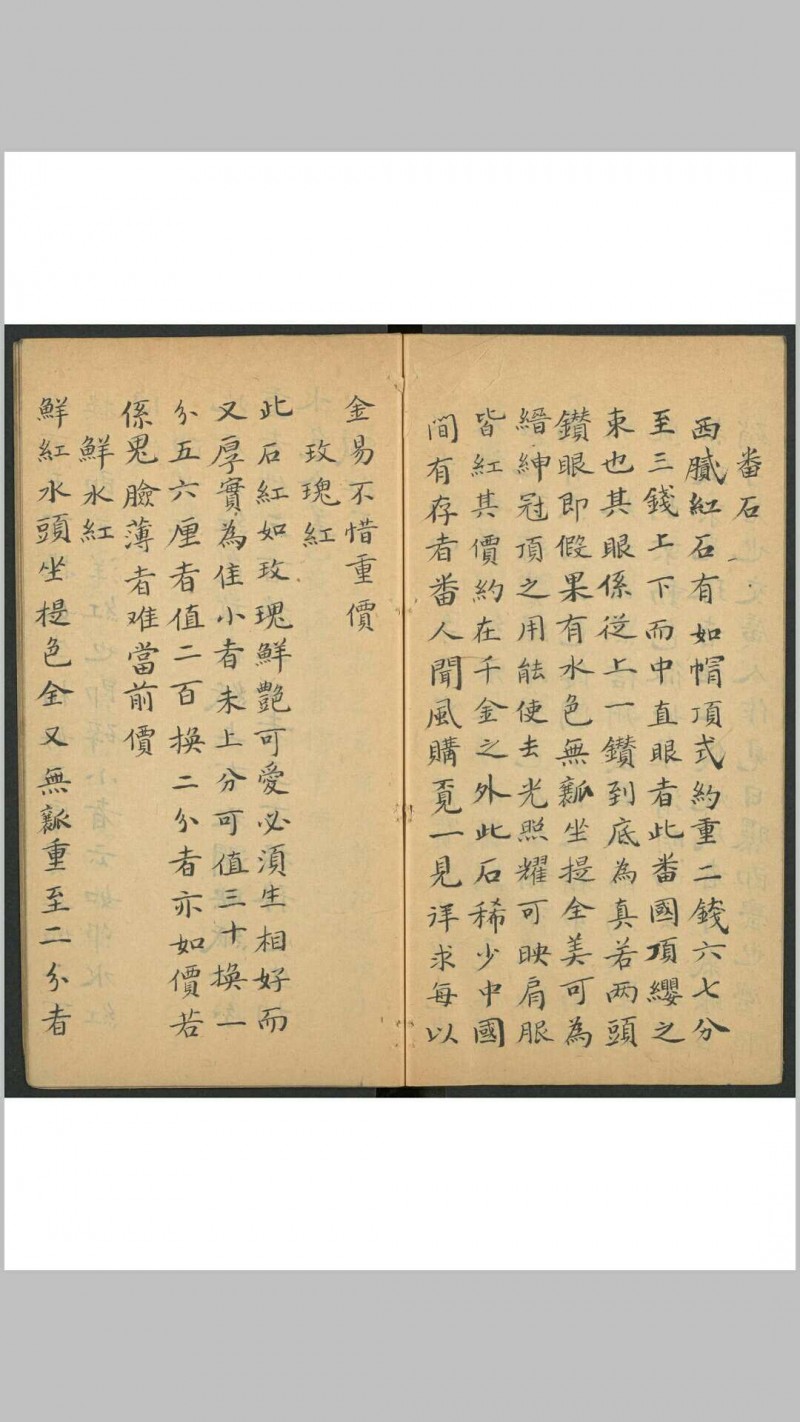 番石
西臟紅石有如帽頂式約重二錢六七分
至三錢上下而中直眼者此番國頂纓之
束也其眼係從上一鑽到底為真若两頭
鑚眼即假果有水色無瓤坐提全美可為
縉紳冠頂之用能使去光照耀可映肩服
皆紅其價約在千金之外此石稀少中國
間有存者番人聞風購覔一見详求每以
金易不惜重價
玫瑰紅
此石紅如玫瑰鮮艷可愛必須生相好而
又厚實為佳小者未上分可值三十换一
分五六厘者值二百换二分者亦如價若
係鬼臉薄者难當前價
鮮水紅
鮮紅水頭坐提色全又無瓤重至二分者